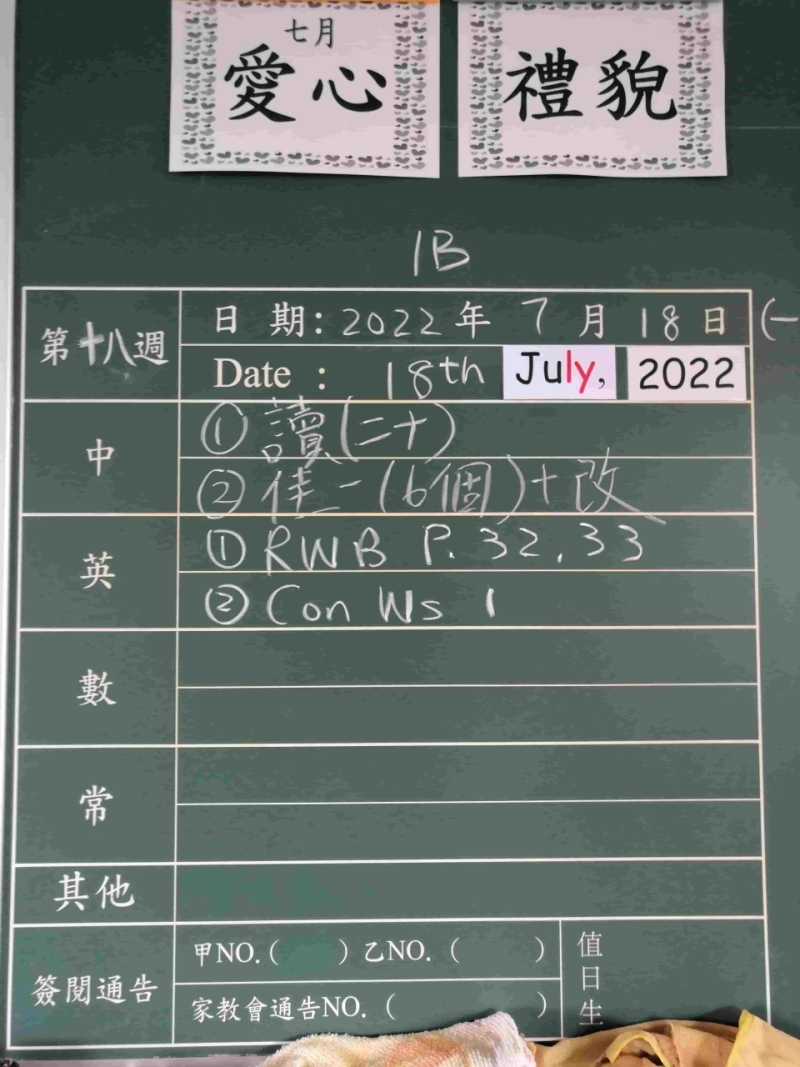 七月
愛心
禮貌
1B
第十八週
日期: 2022年 7月 18日 (一
Date : 18th July, 2022
中
① 讀(二十)
② 佳一(6個)+改
英
① RWB P.32,33
② Con Ws 1
數
常
其他
簽閱通告
甲NO.( ) 乙NO. ( )
家教會通告NO. ( )
值日生